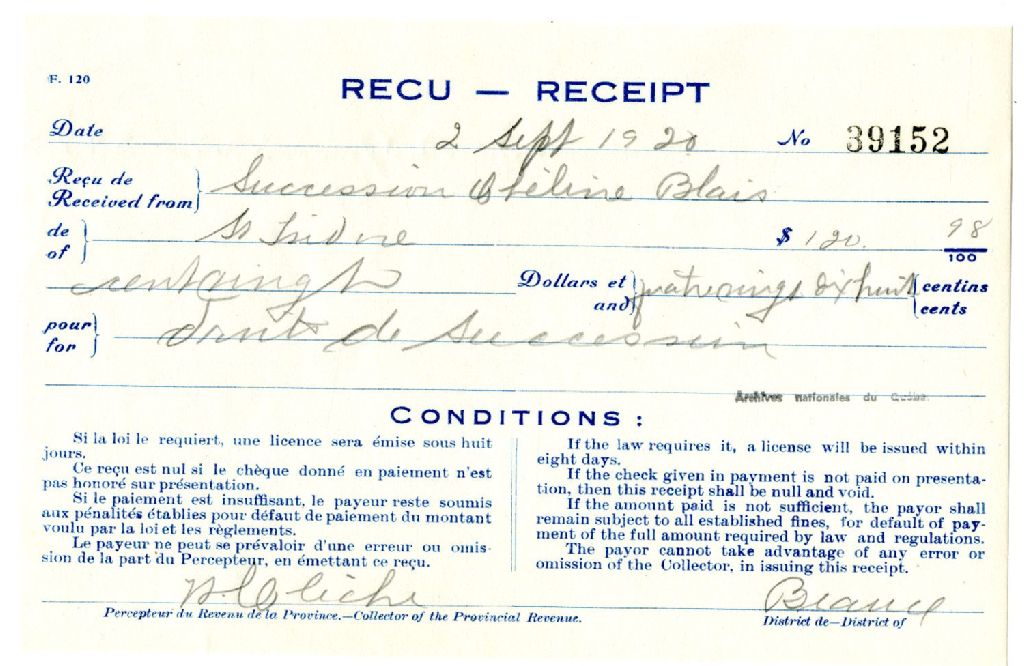 F. 120
RECU — RECEIPT
Date 2 Sept 1920 No 39152
Reçu de Received from Succession Blais
de of St Isidore $ 120. 98/100
cent vingt Dollars et and quatrevingt dix huit centins cents
pour for droits de succession
Archives nationales du Québec
CONDITIONS :
Si la loi le requiert, une licence sera émise sous huit
jours.
Ce reçu est nul si le chèque donné en paiement n'est
pas honoré sur présentation.
Si le paiement est insuffisant, le payeur reste soumis
aux pénalités établies pour défaut de paiement du montant
voulu par la loi et les règlements.
Le payeur ne peut se prévaloir d'une erreur ou omis-
sion de la part du Percepteur, en émettant ce reçu.
If the law requires it, a license will be issued within
eight days.
If the check given in payment is not paid on presenta-
tion, then this receipt shall be null and void.
If the amount paid is not sufficient, the payor shall
remain subject to all established fines, for default of pay-
ment of the full amount required by law and regulations.
The payor cannot take advantage of any error or
omission of the Collector, in issuing this receipt.
Cliche Beauce
Percepteur du Revenu de la Province.—Collector of the Provincial Revenue. District de—District of